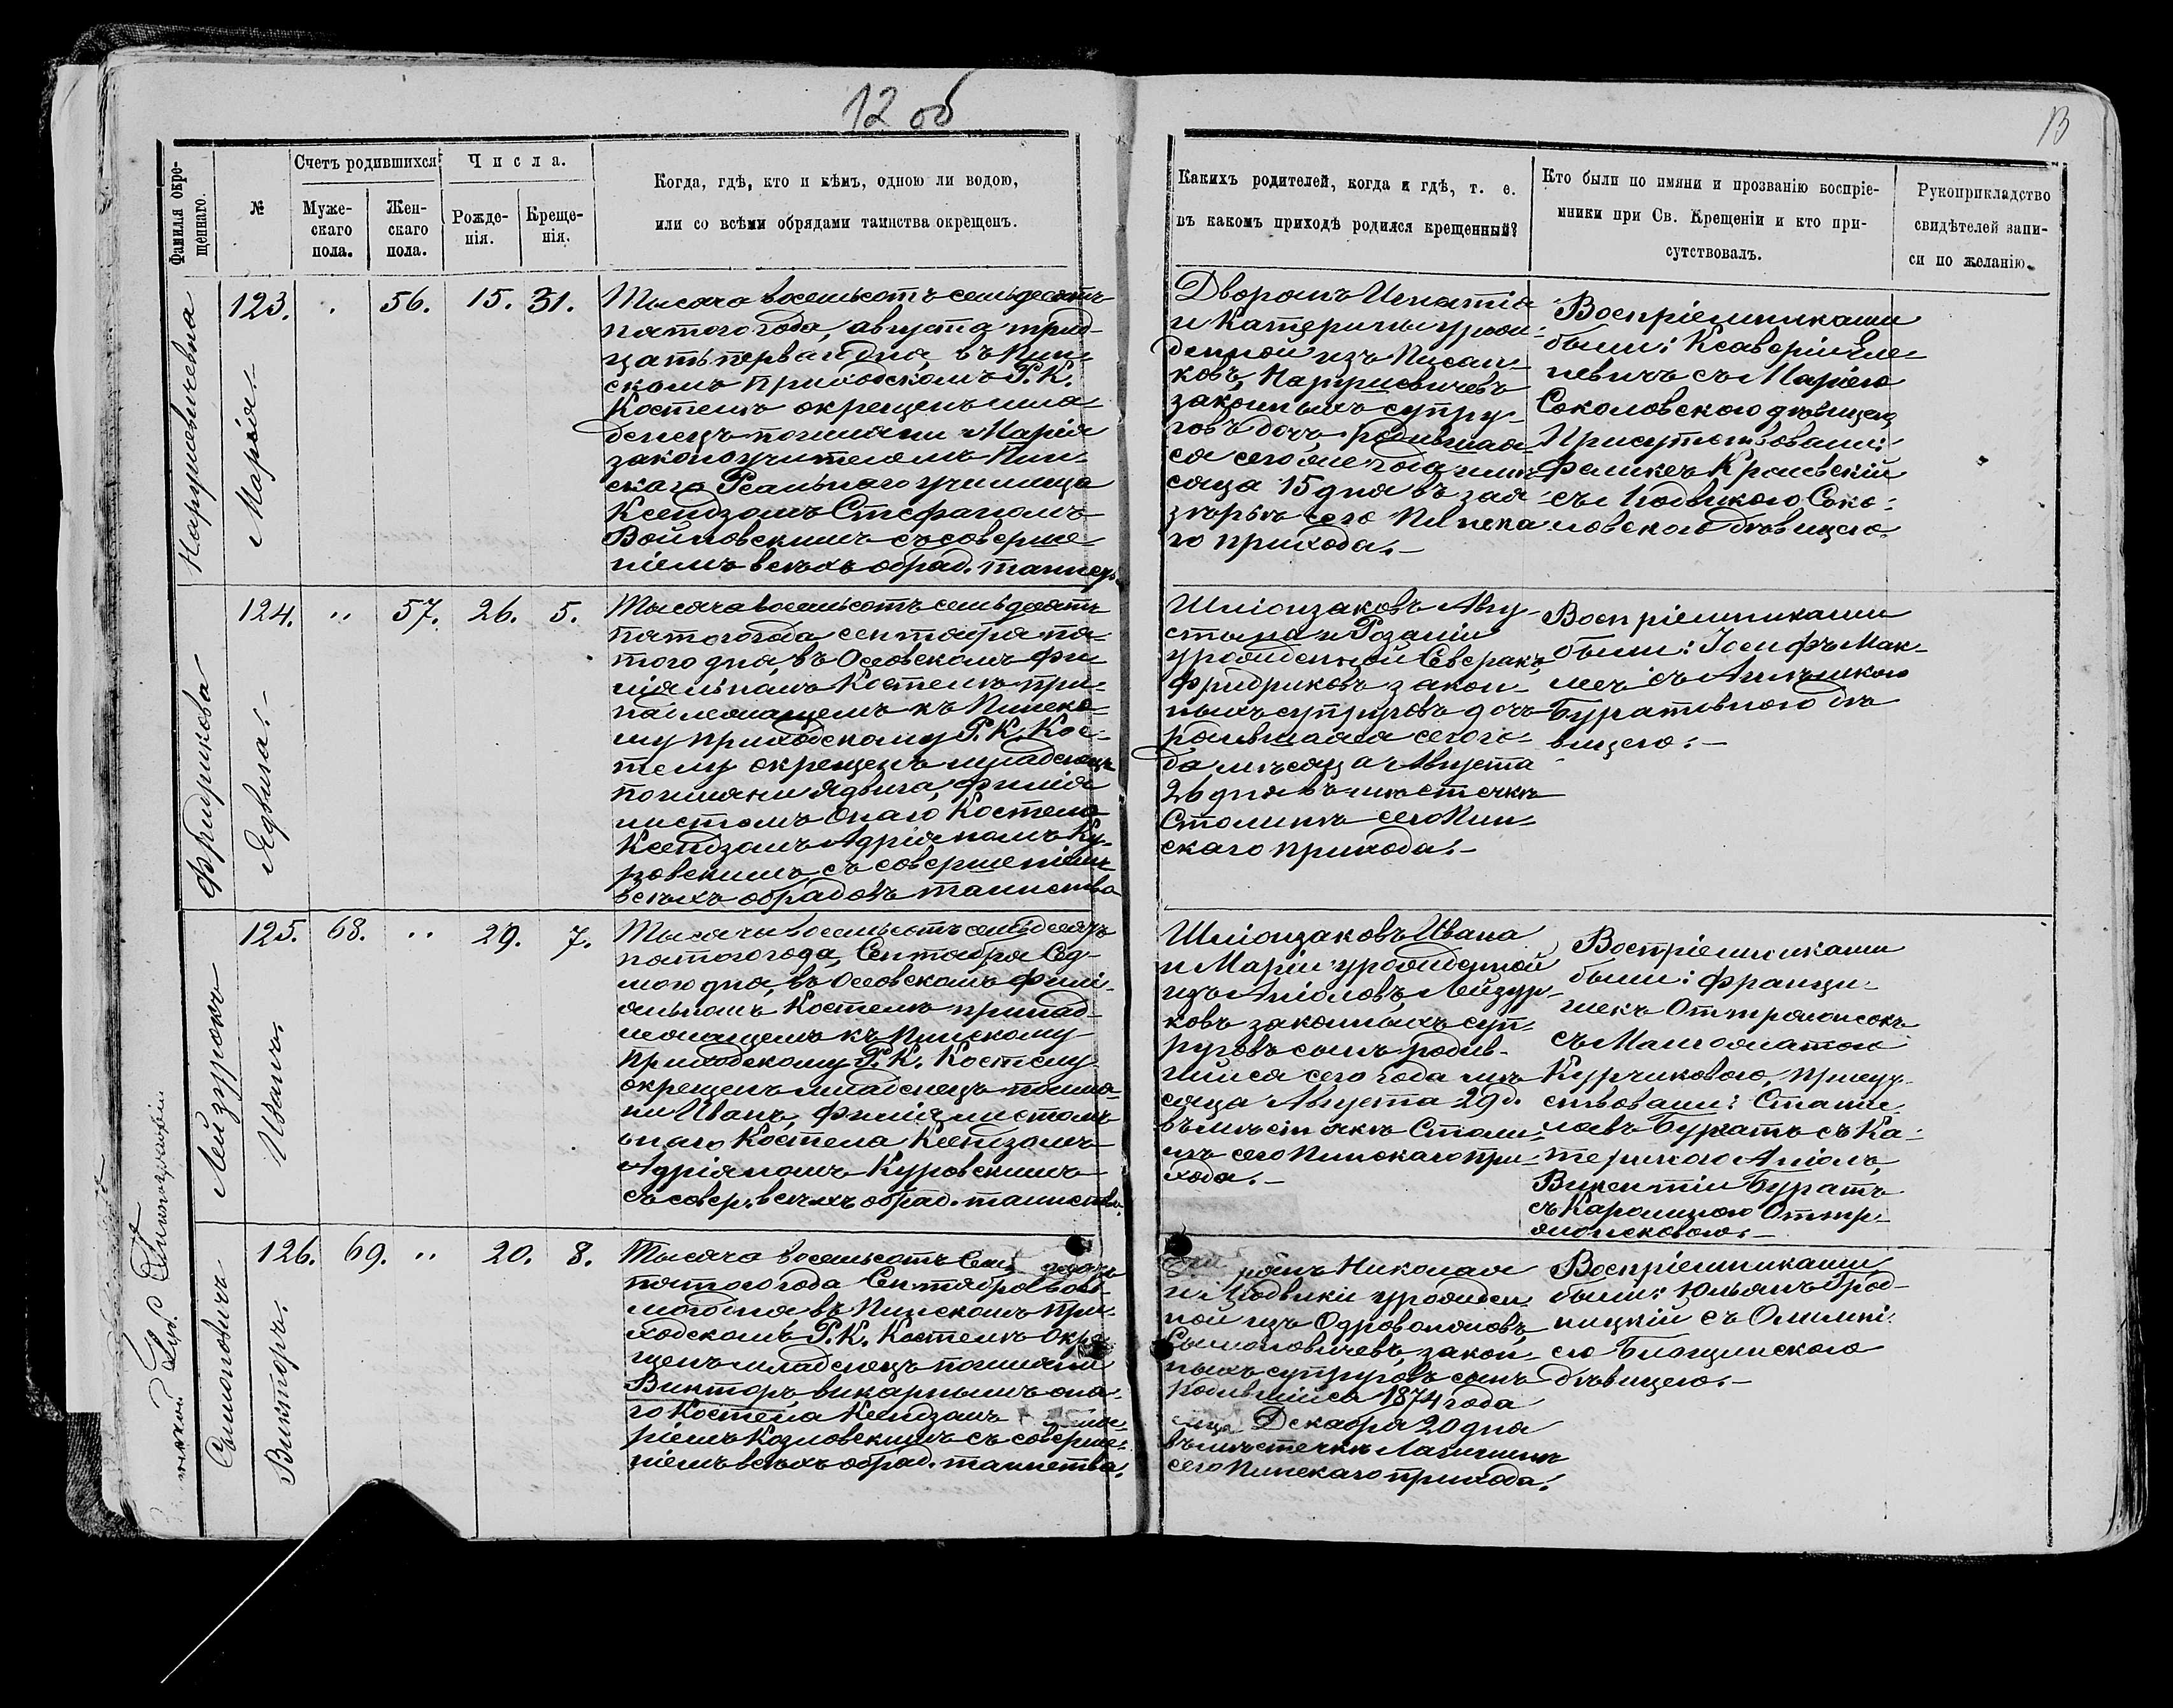 12 об
13
Фамилія окре-
щеннаго.
№
Счетъ родившихся
Муже-
скаго
пола.
Жен-
скаго
пола.
Числа.
Рожде-
нія.
Креще-
нія.
Когда, гдѣ, кто и кѣмъ, одною ли водою,
или со всѣми обрядами таинства окрещенъ.
Какихъ родителей, когда и гдѣ, т. е.
въ какомъ приходѣ родился крещенный?
Кто были по имяни и прозванію воспріе-
мники при Св. Крещеніи и кто при-
сутствовалъ.
Рукоприкладство
свидѣтелей запи-
си по желанію.
Нарушевичевна
Марія.-
123. . 56. 15. 31.
Тысяча восемьсотъ семьдесятъ
пятого года, августа трид-
цать перваго дня, въ Пин-
скомъ приходскомъ Р. К.
Костелѣ окрещенъ мла
денецъ по имяни Марія
законоучителемъ Пин-
скаго Реальнаго училища
Ксендзомъ Стефаномъ
Войновскимъ съ соверше
ніемъ всѣхъ обряд. таинств.
Дворянъ Игнатія
и Катерины урож-
денной изъ
Нарушевичевъ
законныхъ супру-
говъ дочь, родившая
ся сего же года мѣ
сяца 15 дня въ
сего Пинска
го прихода.-
Воспріемниками
были: Ксаверій
съ Маріею
Соколовскою дѣвицею,
Присутствовали:
Феликсъ Краевскій
съ Людвикою Соко-
ловскою дѣвицею.
Фридрикова
Ядвига.-
124. " 57. 26. 5.
Тысяча восемьсотъ семьдесятъ
пятого года, сентября пя-
того дня, въ Осовскомъ фи
ліяльномъ Костелѣ при-
надлежащемъ къ Пинско-
му приходскому Р. К. Кос-
телу окрещенъ младенецъ
по имяни Ядвига, филія
листомъ онаго Костела
Ксендзомъ Адріяномъ Ку-
ровскимъ съ совершеніемъ
всѣхъ обрядовъ таинства
Шліонзаковъ Авгу-
стына и Розаліи
урожденной Сверакъ,
Фридриковъ закон-
ныхъ супруговъ дочь
родившаяся сего го-
да мѣсяца Августа
26 дня въ мѣстечкѣ
Столинѣ сего Пин-
скаго прихода.-
Воспріемниками
были: Іосифъ Мак-
съ
дѣ
вицею.-
Лейзурокъ
Иванъ.
125. 68. " 29. 7.
Тысяча восемьсотъ семьдесятъ
пятого года, Сентября Сед-
мого дня, въ Осовскомъ Филі-
яльномъ Костелѣ принад-
лежащемъ къ Пинскому
приходскому Р. К. Костелу
окрещенъ младенецъ по имя-
ни Иванъ, филіялистомъ
онаго Костела Ксендзомъ
Адріяномъ Куровскимъ
съ совер. всѣхъ обряд. таинства.
Шліонзаковъ Ивана
и Маріи урожденной
изъ Аніоловъ, Лейзур-
ковъ законныхъ суп-
руговъ сынъ родив-
шійся сего года мѣ
сяца Августа 29 д.
въ мѣстечкѣ Столи-
нѣ сего Пинскаго при-
хода.-
Воспріемниками
были: Франци-
шекъ
съ Малгожатою
Курчиковою, присут-
ствовали: Стани-
лавъ Буратъ съ Ка-
териною Аніолъ,
Викентій Буратъ
съ Каролиною
Симоновичъ
Викторъ.
126. 69. " 20. 8.
Тысяча восемьсотъ
пятого года Сентября вось-
мого дня въ Пинскомъ при-
ходскомъ Р. К. Костелѣ окре
щенъ младенецъ по имяни
Викторъ, викарнымъ она-
го Костела Ксендзомъ
Козловскимъ съ соверше-
ніемъ всѣхъ обряд. таинства.
Николая
и Людвики урожден-
ной изъ Одровонжовъ,
Симоновичевъ, закон-
ныхъ супруговъ сынъ
родившійся 1874 года
Декабря 20 дня
въ мѣстечкѣ Логишинѣ
сего Пинскаго прихода.
Воспріемниками
были: Юльянъ Брод-
ницкій съ Олимпі-
ею
дѣвицею.-